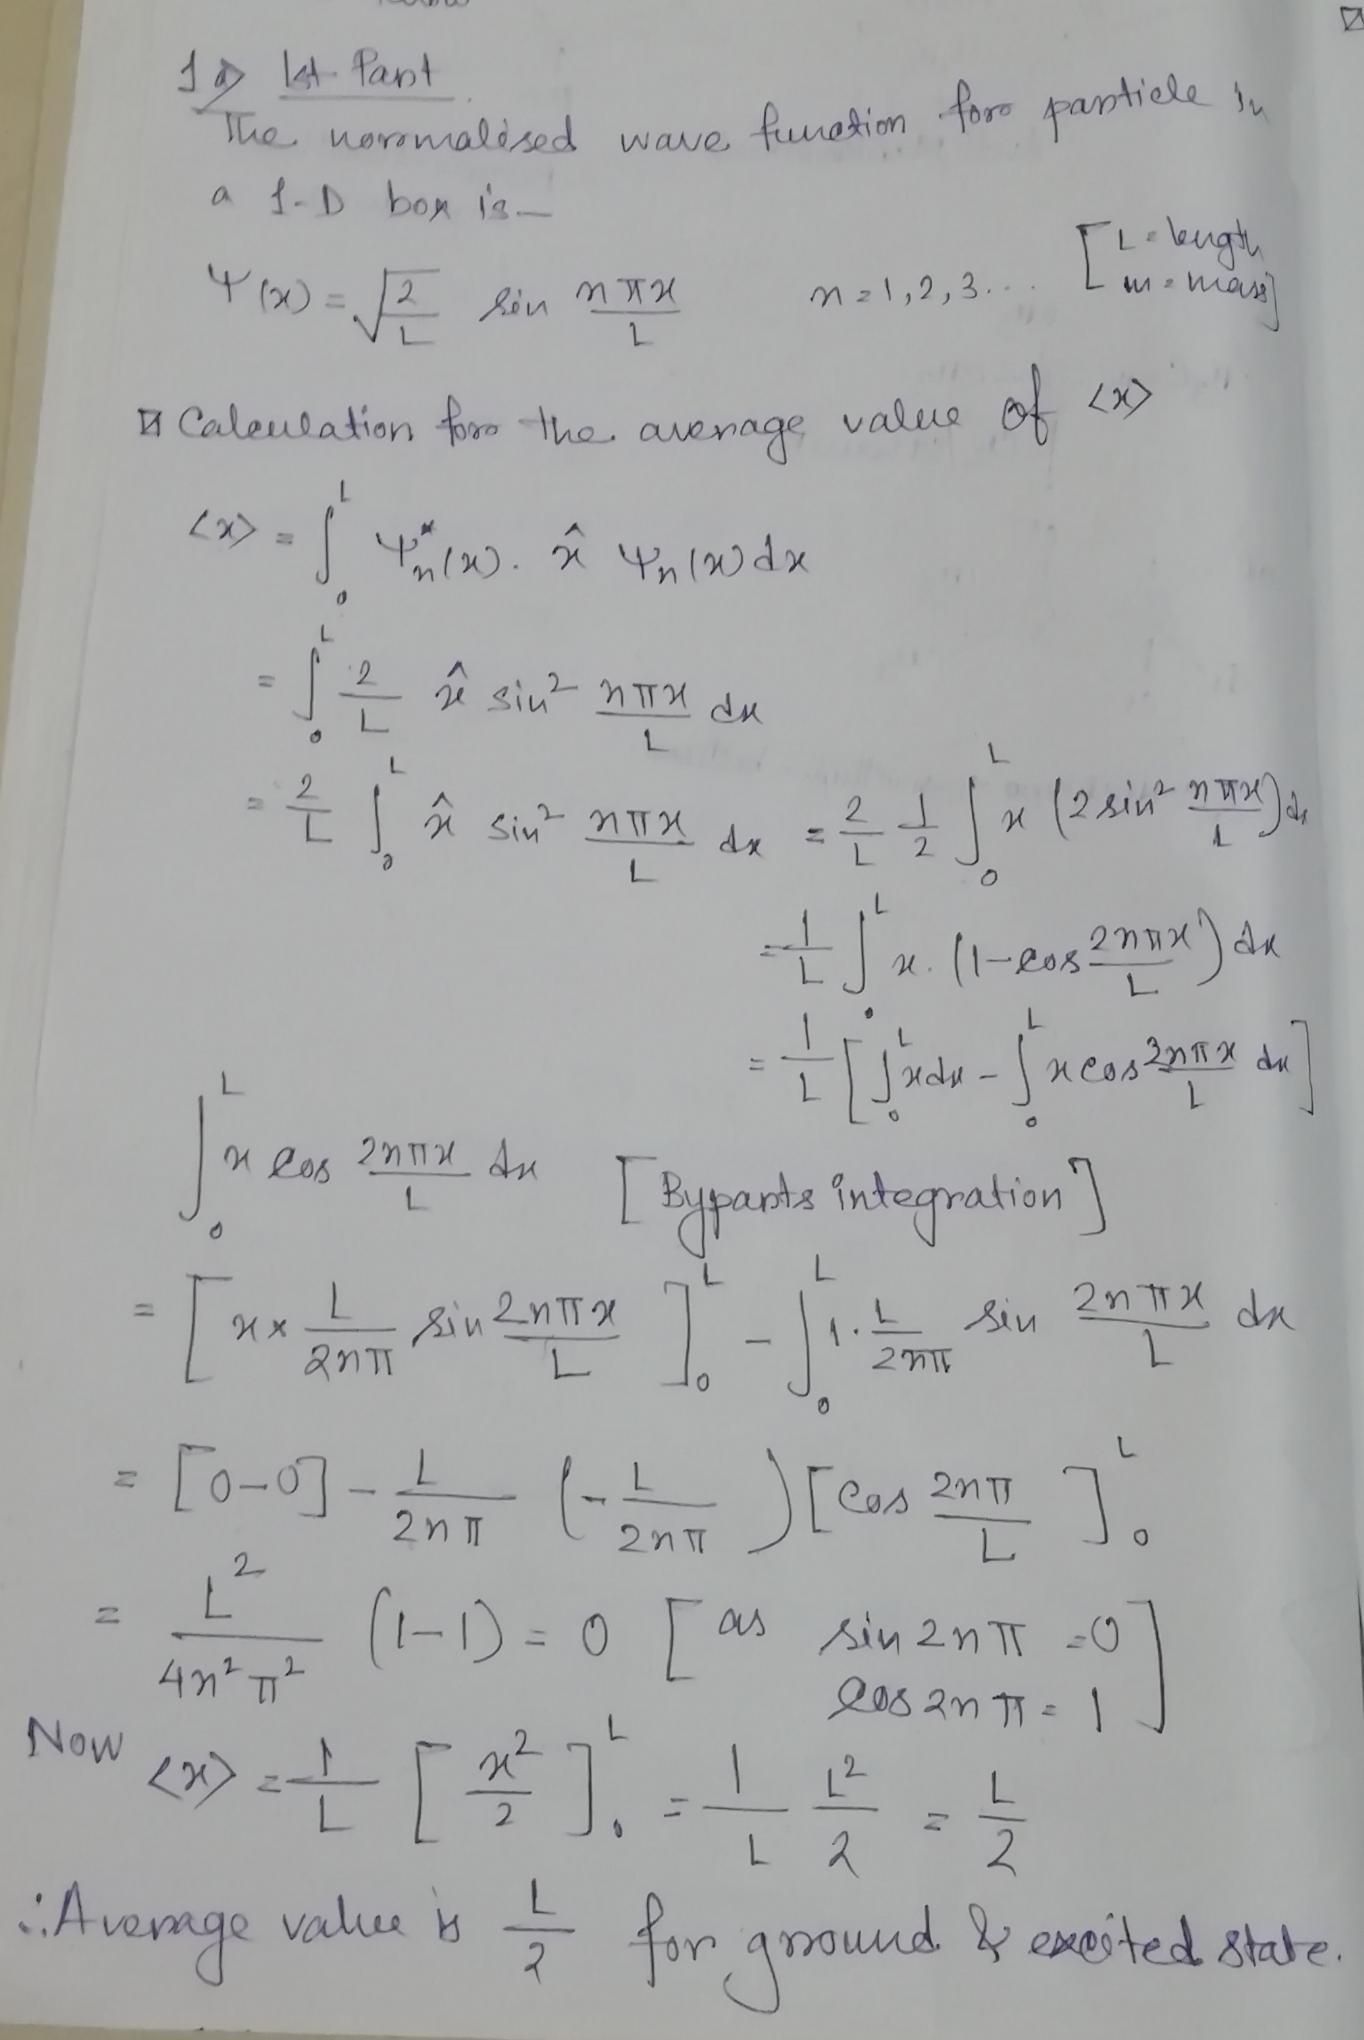 1 a) 1st Part
The normalised wave function for particle in
a 1-D box is—
Ψ(x) = √(2/L) sin nπx/L n = 1, 2, 3... [L = length
m = mass]
Calculation for the average value of <x>
<x> = ∫₀ᴸ Ψₙ*(x). x̂ Ψₙ(x) dx
= ∫₀ᴸ 2/L x̂ sin² nπx/L dx
= 2/L ∫₀ᴸ x̂ sin² nπx/L dx = 2/L 1/2 ∫₀ᴸ x (2 sin² nπx/L) dx
= 1/L ∫₀ᴸ x. (1 - cos 2nπx/L) dx
= 1/L [∫₀ᴸ x dx - ∫₀ᴸ x cos 2nπx/L dx]
∫₀ᴸ x cos 2nπx/L dx [By parts integration]
= [x × L/2nπ sin 2nπx/L]₀ᴸ - ∫₀ᴸ 1. L/2nπ sin 2nπx/L dx
= [0-0] - L/2nπ (- L/2nπ) [cos 2nπ/L]₀ᴸ
= L²/4n²π² (1-1) = 0 [as sin 2nπ = 0
cos 2nπ = 1]
Now <x> = 1/L [x²/2]₀ᴸ = 1/L L²/2 = L/2
∴ Average value is L/2 for ground & excited state.